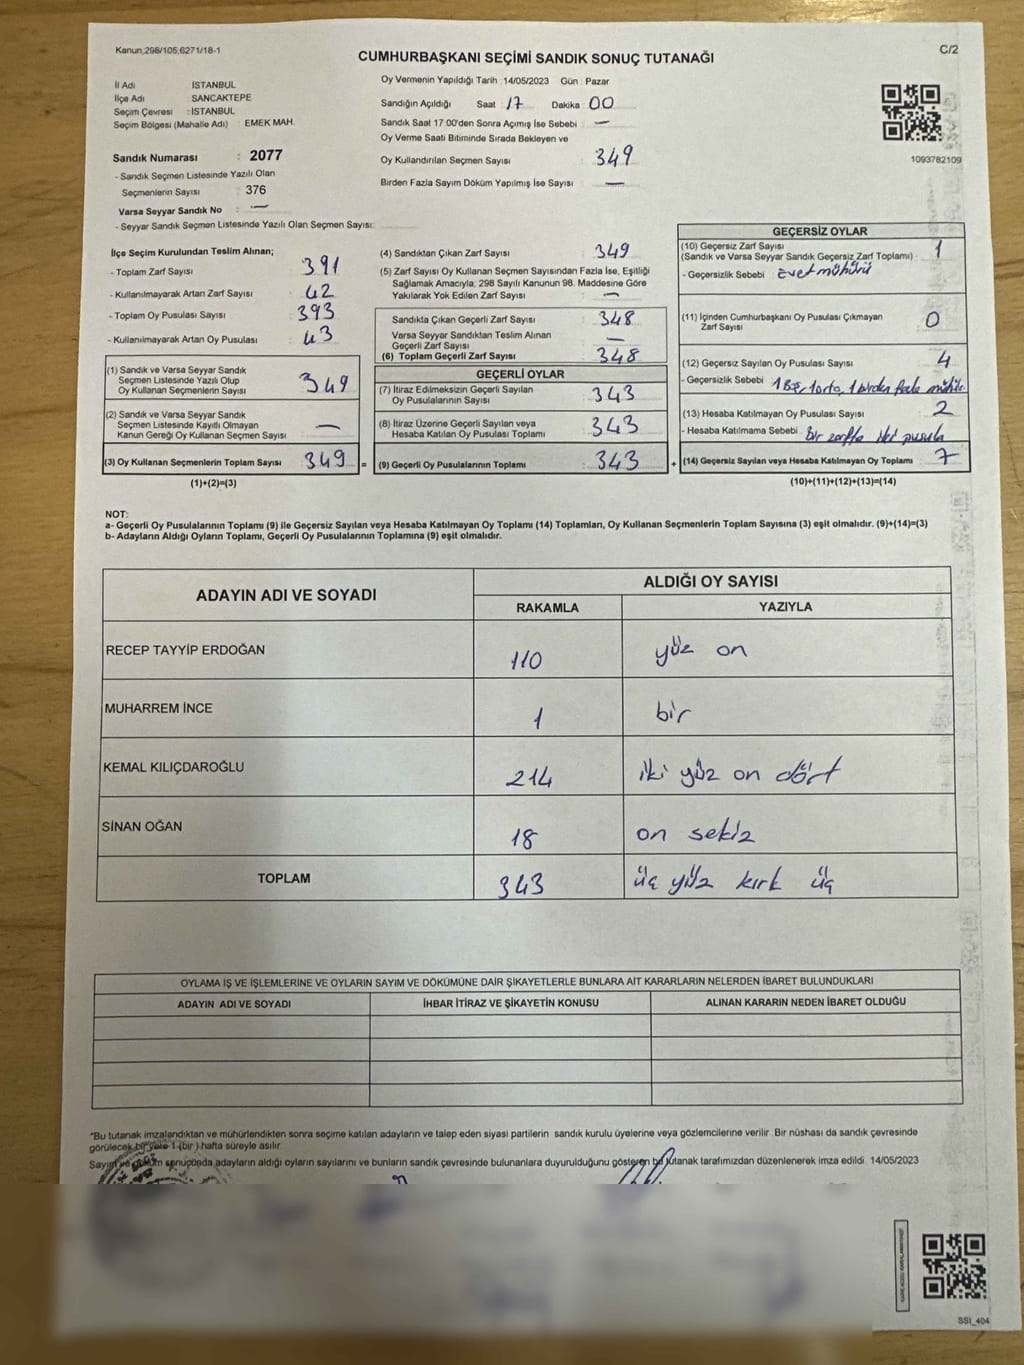 Kanun,298/105,6271/18-1
C/2
CUMHURBAŞKANI SEÇİMİ SANDIK SONUÇ TUTANAĞI
İl Adı İSTANBUL
İlçe Adı SANCAKTEPE
Seçim Çevresi : İSTANBUL
Seçim Bölgesi (Mahalle Adı) : EMEK MAH.
Sandık Numarası : 2077
- Sandık Seçmen Listesinde Yazılı Olan
Seçmenlerin Sayısı : 376
Varsa Seyyar Sandık No : —
- Seyyar Sandık Seçmen Listesinde Yazılı Olan Seçmen Sayısı:
Oy Vermenin Yapıldığı Tarih : 14/05/2023 Gün : Pazar
Sandığın Açıldığı Saat : 17 Dakika : 00
Sandık Saat 17.00'den Sonra Açılmış İse Sebebi : —
Oy Verme Saati Bitiminde Sırada Bekleyen ve
Oy Kullandırılan Seçmen Sayısı : 349
Birden Fazla Sayım Döküm Yapılmış İse Sayısı : —
1093782109
İlçe Seçim Kurulundan Teslim Alınan;
- Toplam Zarf Sayısı : 391
- Kullanılmayarak Artan Zarf Sayısı : 42
- Toplam Oy Pusulası Sayısı : 393
- Kullanılmayarak Artan Oy Pusulası : 43
(1) Sandık ve Varsa Seyyar Sandık
Seçmen Listesinde Yazılı Olup
Oy Kullanan Seçmenlerin Sayısı : 349
(2) Sandık ve Varsa Seyyar Sandık
Seçmen Listesinde Kayıtlı Olmayan
Kanun Gereği Oy Kullanan Seçmen Sayısı : —
(3) Oy Kullanan Seçmenlerin Toplam Sayısı : 349 =
(1)+(2)=(3)
(4) Sandıktan Çıkan Zarf Sayısı : 349
(5) Zarf Sayısı Oy Kullanan Seçmen Sayısından Fazla İse, Eşitliği
Sağlamak Amacıyla; 298 Sayılı Kanunun 98. Maddesine Göre
Yakılarak Yok Edilen Zarf Sayısı : —
Sandıkta Çıkan Geçerli Zarf Sayısı : 348
Varsa Seyyar Sandıktan Teslim Alınan
Geçerli Zarf Sayısı : —
(6) Toplam Geçerli Zarf Sayısı : 348
GEÇERLİ OYLAR
(7) İtiraz Edilmeksizin Geçerli Sayılan
Oy Pusulalarının Sayısı : 343
(8) İtiraz Üzerine Geçerli Sayılan veya
Hesaba Katılan Oy Pusulası Toplamı : 343
(9) Geçerli Oy Pusulalarının Toplamı : 343 +
GEÇERSİZ OYLAR
(10) Geçersiz Zarf Sayısı
(Sandık ve Varsa Seyyar Sandık Geçersiz Zarf Toplamı) : 1
- Geçersizlik Sebebi : Evet mühürü
(11) İçinden Cumhurbaşkanı Oy Pusulası Çıkmayan
Zarf Sayısı : 0
(12) Geçersiz Sayılan Oy Pusulası Sayısı : 4
- Geçersizlik Sebebi : 1 Boş, 1 orta, 1 birden fazla mühür
(13) Hesaba Katılmayan Oy Pusulası Sayısı : 2
- Hesaba Katılmama Sebebi : Bir zarfta iki pusula
(14) Geçersiz Sayılan veya Hesaba Katılmayan Oy Toplamı : 7
(10)+(11)+(12)+(13)=(14)
NOT:
a- Geçerli Oy Pusulalarının Toplamı (9) ile Geçersiz Sayılan veya Hesaba Katılmayan Oy Toplamı (14) Toplamları, Oy Kullanan Seçmenlerin Toplam Sayısına (3) eşit olmalıdır. (9)+(14)=(3)
b- Adayların Aldığı Oyların Toplamı, Geçerli Oy Pusulalarının Toplamına (9) eşit olmalıdır.
ADAYIN ADI VE SOYADI
ALDIĞI OY SAYISI
RAKAMLA YAZIYLA
RECEP TAYYİP ERDOĞAN 110 yüz on
MUHARREM İNCE 1 bir
KEMAL KILIÇDAROĞLU 214 iki yüz on dört
SİNAN OĞAN 18 on sekiz
TOPLAM 343 üç yüz kırk üç
OYLAMA İŞ VE İŞLEMLERİNE VE OYLARIN SAYIM VE DÖKÜMÜNE DAİR ŞİKAYETLERLE BUNLARA AİT KARARLARIN NELERDEN İBARET BULUNDUKLARI
ADAYIN ADI VE SOYADI İHBAR İTİRAZ VE ŞİKAYETİN KONUSU ALINAN KARARIN NEDEN İBARET OLDUĞU
*Bu tutanak imzalandıktan ve mühürlendikten sonra seçime katılan adayların ve talep eden siyasi partilerin sandık kurulu üyelerine veya gözlemcilerine verilir. Bir nüshası da sandık çevresinde
görülecek bir yere 1 (bir) hafta süreyle asılır.
Sayım ve döküm sonucunda adayların aldığı oyların sayılarını ve bunların sandık çevresinde bulunanlara duyurulduğunu gösteren bu tutanak tarafımızdan düzenlenerek imza edildi. 14/05/2023
SSI_404